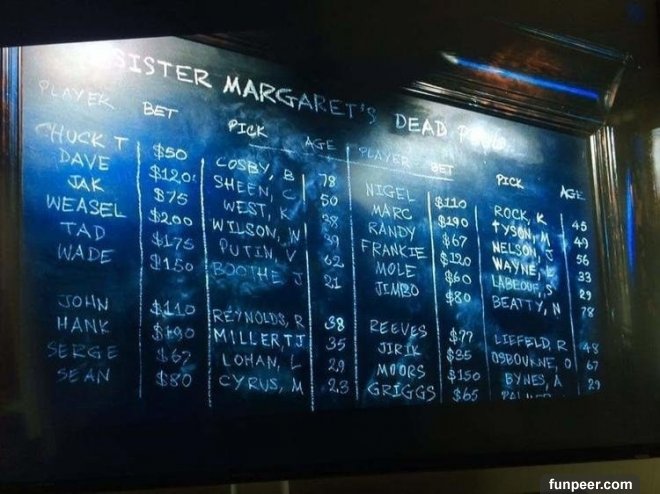 SISTER MARGARET'S DEAD
PLAYER BET PICK AGE
CHUCK T $50 COSBY, B 78
DAVE $120 SHEEN, C 50
JAK $75 WEST, K 38
WEASEL $200 WILSON, W 39
TAD $175 PUTIN, V 62
WADE $150 BOOTHE J 21
JOHN $110 REYNOLDS, R 38
HANK $190 MILLER TJ 35
SERGE $67 LOHAN, L 29
SEAN $80 CYRUS, M 23
PLAYER BET PICK AGE
NIGEL $110 ROCK, K 45
MARC $190 TYSON, M 49
RANDY $67 NELSON, J 56
FRANKIE $120 WAYNE, L 33
MOLE $60 LABEOUF, S 29
JIMBO $80 BEATTY, N 78
REEVES LIEFELD, R 48
JIRIK $35 OSBOURNE, O 67
MOORS $150 BYNES, A 29
GRIGGS $65
funpeer.com